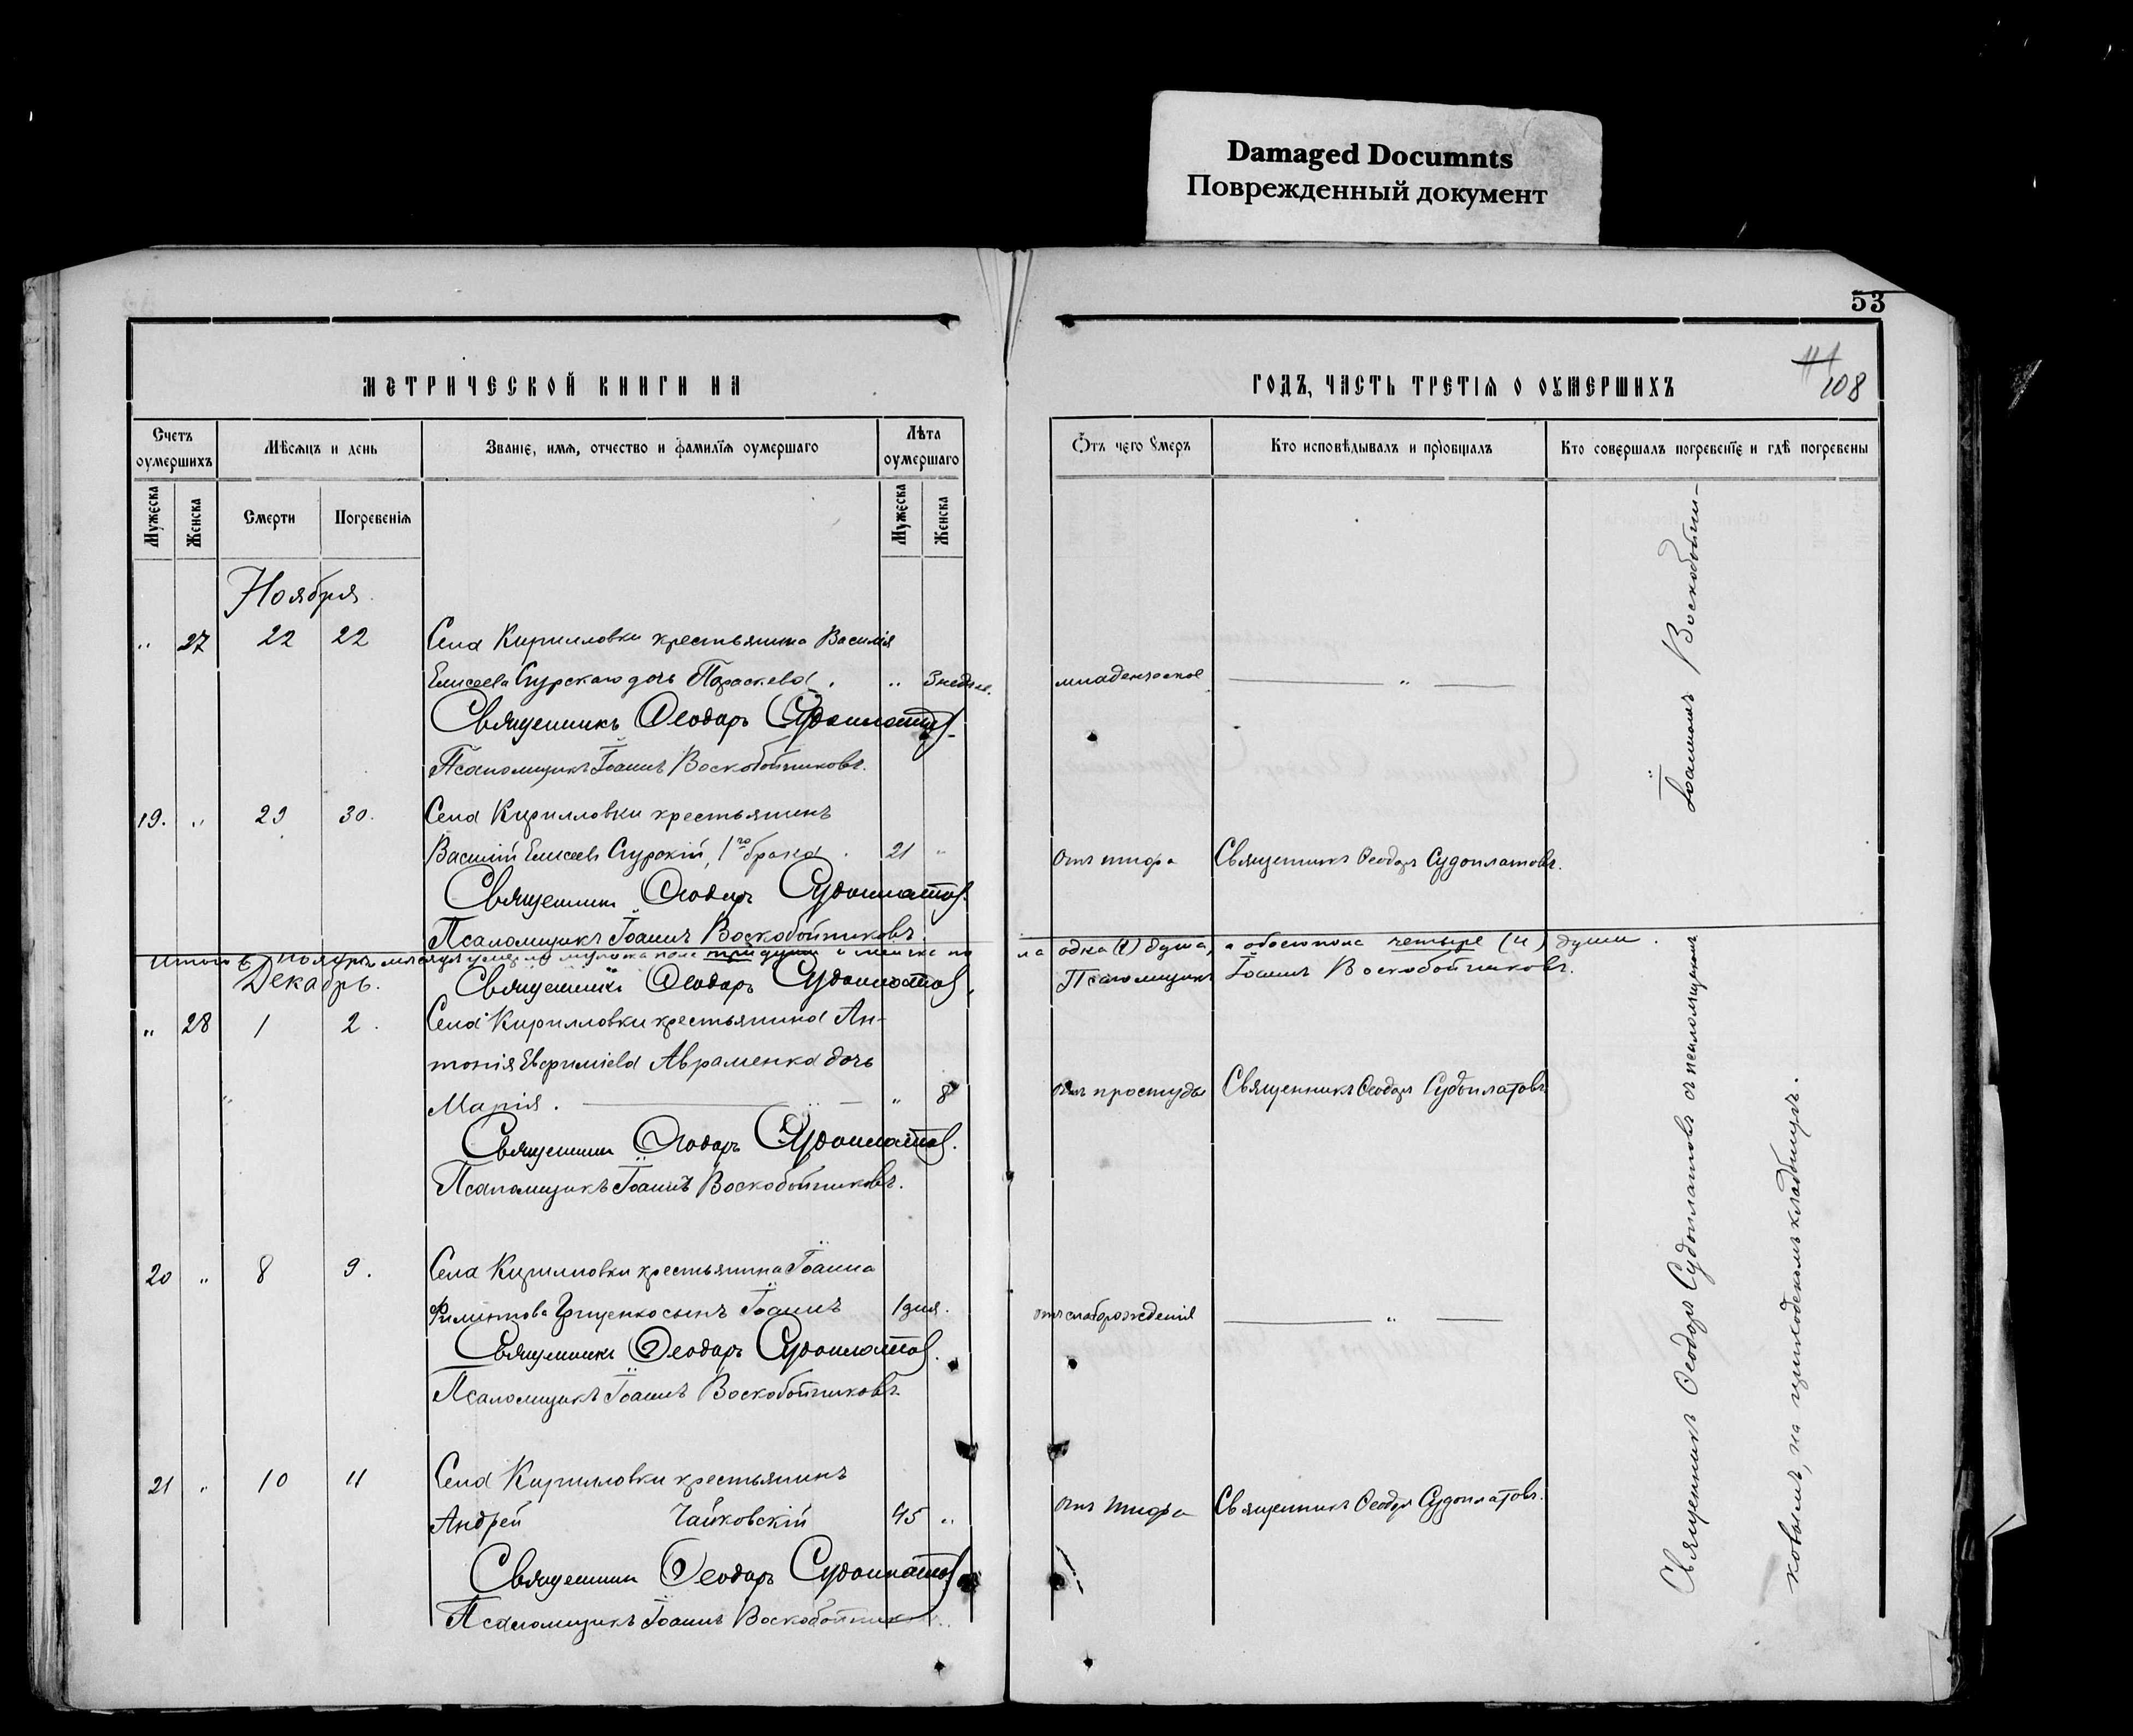 Damaged Documnts
Поврежденный документ
53
108
МЕТРИЧЕСКОЙ КНИГИ НА
ГОДЪ, ЧАСТЬ ТРЕТІЯ О ОУМЕРШИХЪ
Счетъ оумершихъ
Мѣсяцъ и день
Званіе, имя, отчество и фамилія оумершаго
Лѣта оумершаго
Отъ чего Умеръ
Кто исповѣдывалъ и пріобщалъ
Кто совершалъ погребеніе и гдѣ погребены
Мужеска
Женска
Смерти
Погребенія
Мужеска
Женска
Ноября
„ 27 22 22 Села Кирилловки крестьянина Василія
Елисеева Сурскаго дочь Параскева. „ 3 недѣл. младенческое „
Священникъ Ѳеодоръ Судоплатовъ
Псаломщикъ Іоаннъ Воскобойниковъ.
19. „ 29 30. Села Кирилловки крестьянинъ
Василій Елисеевъ Сурскій, 1го брака. 21 „ отъ тифа Священникъ Ѳеодоръ Судоплатовъ.
Священникъ Ѳеодоръ Судоплатовъ.
Псаломщикъ Іоаннъ Воскобойниковъ
Итого въ Ноябрѣ мѣсяцѣ умерло мужска пола три души а женска по
ла одна (1) душа, а обоего пола четыре (4) души.
Декабрь. Священникъ Ѳеодоръ Судоплатовъ.
Псаломщикъ Іоаннъ Воскобойниковъ.
„ 28 1 2. Села Кирилловки крестьянина Ан-
тонія Евфиміева Авраменка дочь
Марія. „ 8 отъ простуды Священникъ Ѳеодоръ Судоплатовъ
Священникъ Ѳеодоръ Судоплатовъ.
Псаломщикъ Іоаннъ Воскобойниковъ.
20 „ 8 9. Села Кирилловки крестьянина Іоанна
Грищенко сынъ Іоаннъ 1 дня. отъ слаборожденія „
Священникъ Ѳеодоръ Судоплатовъ.
Псаломщикъ Іоаннъ Воскобойниковъ.
21 „ 10 11 Села Кирилловки крестьянинъ
Андрей Чайковскій 45 „ отъ тифа Священникъ Ѳеодоръ Судоплатовъ.
Священникъ Ѳеодоръ Судоплатовъ
Псаломщикъ Іоаннъ Воскобойников
Священникъ Ѳеодоръ Судоплатовъ съ псаломщикомъ Іоанномъ Воскобойни-
ковымъ, на приходскомъ кладбищѣ.